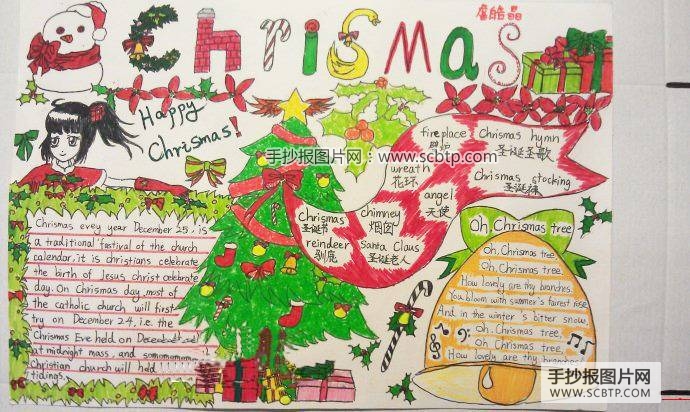 Chrismas
Happy
Chrismas!
手抄报图片网:www.scbtp.com
fireplace
壁炉
Chrismas hymn
圣诞圣歌
wreath
花环
Chrismas stocking
圣诞袜
angel
天使
Chrismas
圣诞节
chimney
烟囱
reindeer
驯鹿
Santa Claus
圣诞老人
Chrismas evey year December 25. is
a traditional festival of the church
calendar, it is christians celebrate
the birth of Jesus christ celebrate
day. On Chrismas day, most of
the catholic church will first
try on December 24, i.e. the
Chrismas Eve held on
at midnight mass, and
Christian church will held
tidings.
Oh, Chrismas tree
Oh, Chrismas tree
Oh, Chrismas tree,
How lovely are thy branches.
You bloom with summer's fairest rise
And in the winter's bitter snow.
Oh, Chrismas tree,
Oh, Chrismas tree,
How lovely are thy branches!
手抄报图片网
WWW.SCBTP.COM